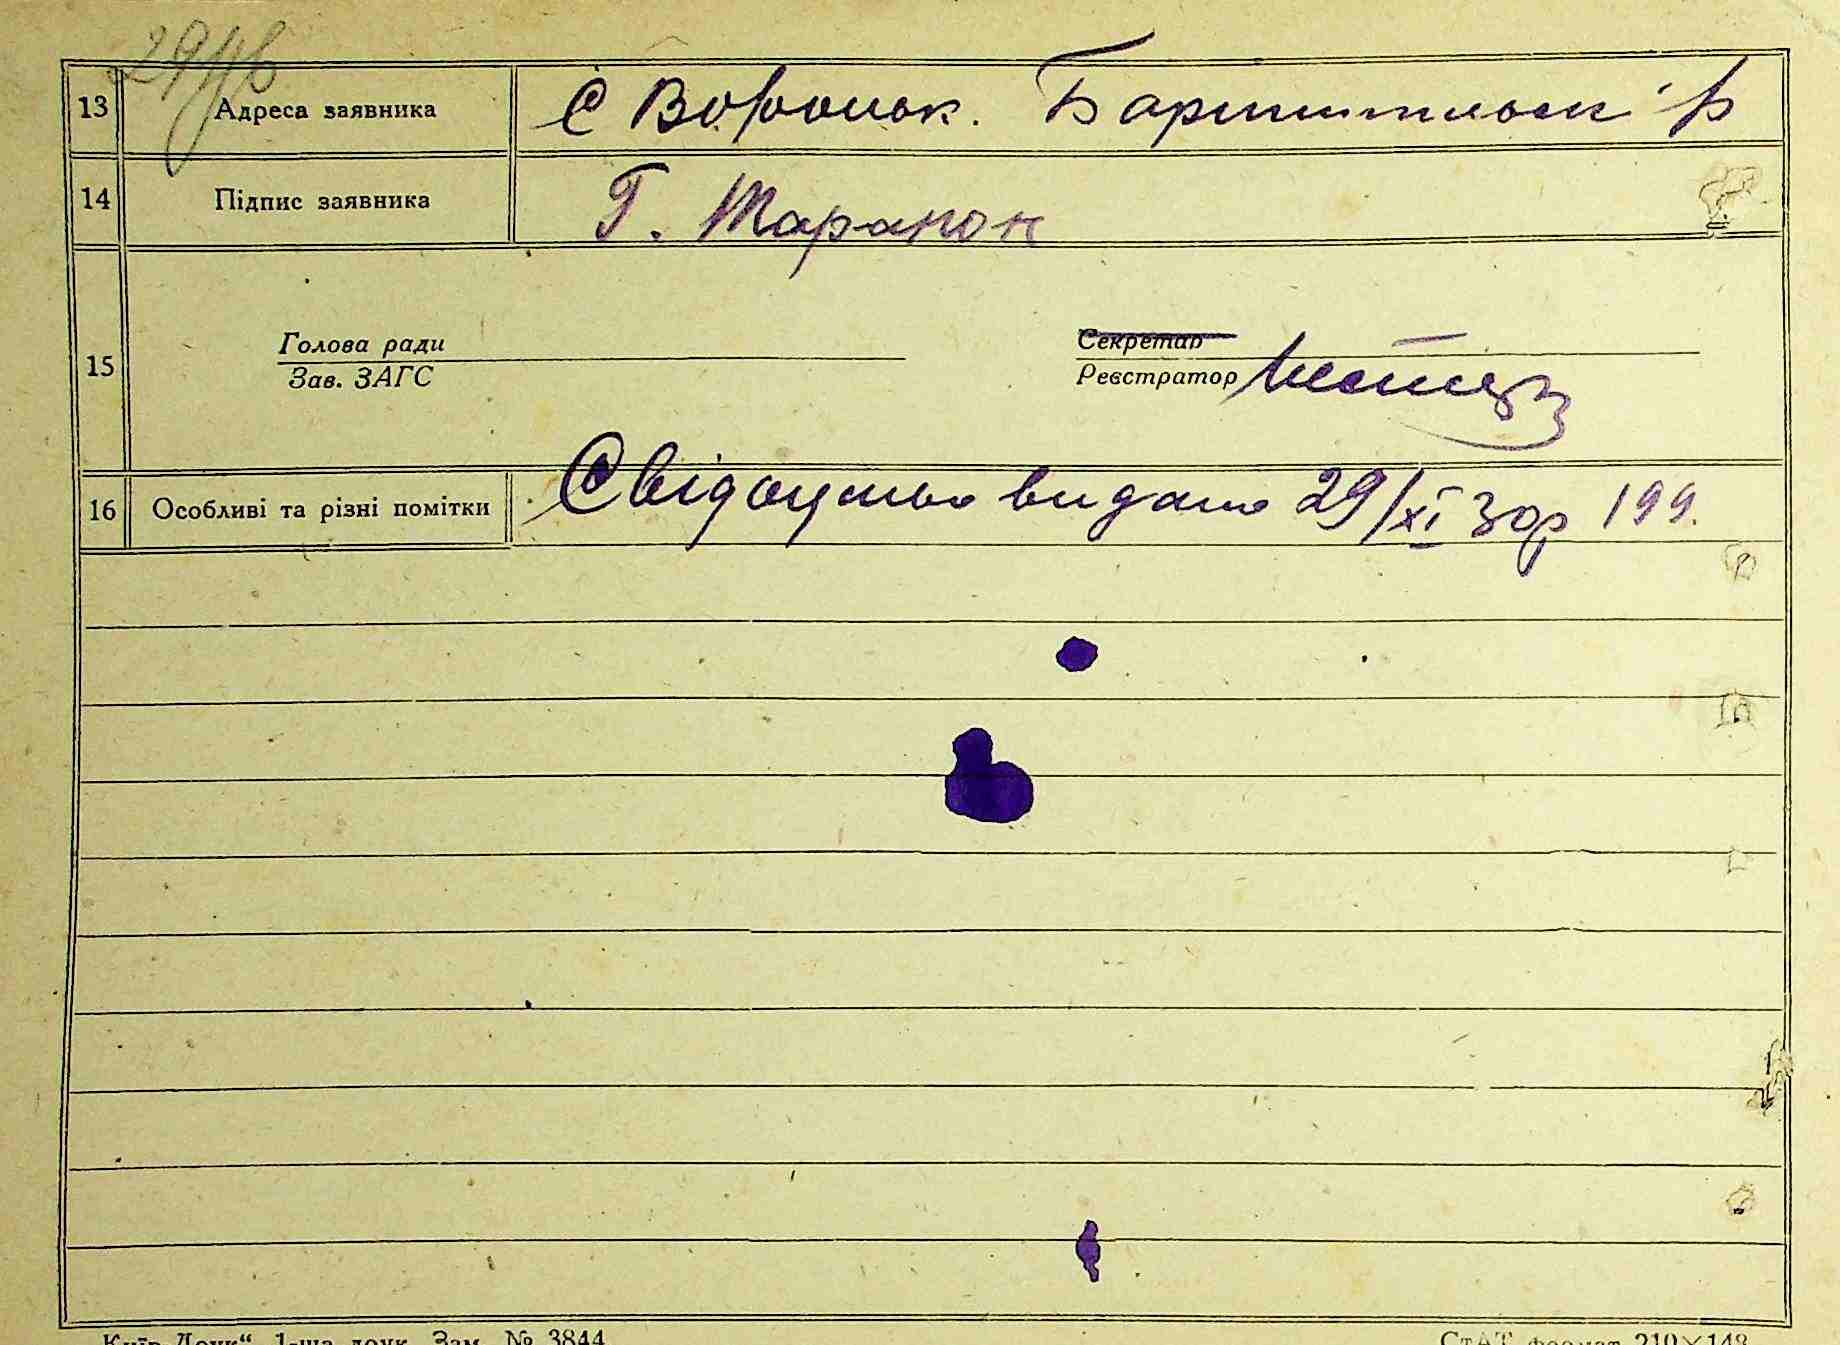 13 Адреса заявника С Вороньк. Баришпільськ Р
14 Підпис заявника Г. Тарапон
15 Голова ради Секретар
Зав. ЗАГС Реєстратор
16 Особливі та різні помітки Свідоцтво видано 29/XI 30р 199.
„Київ-Друк“ 1-ша друк. Зам. № 3844
СтАТ формат 210×148